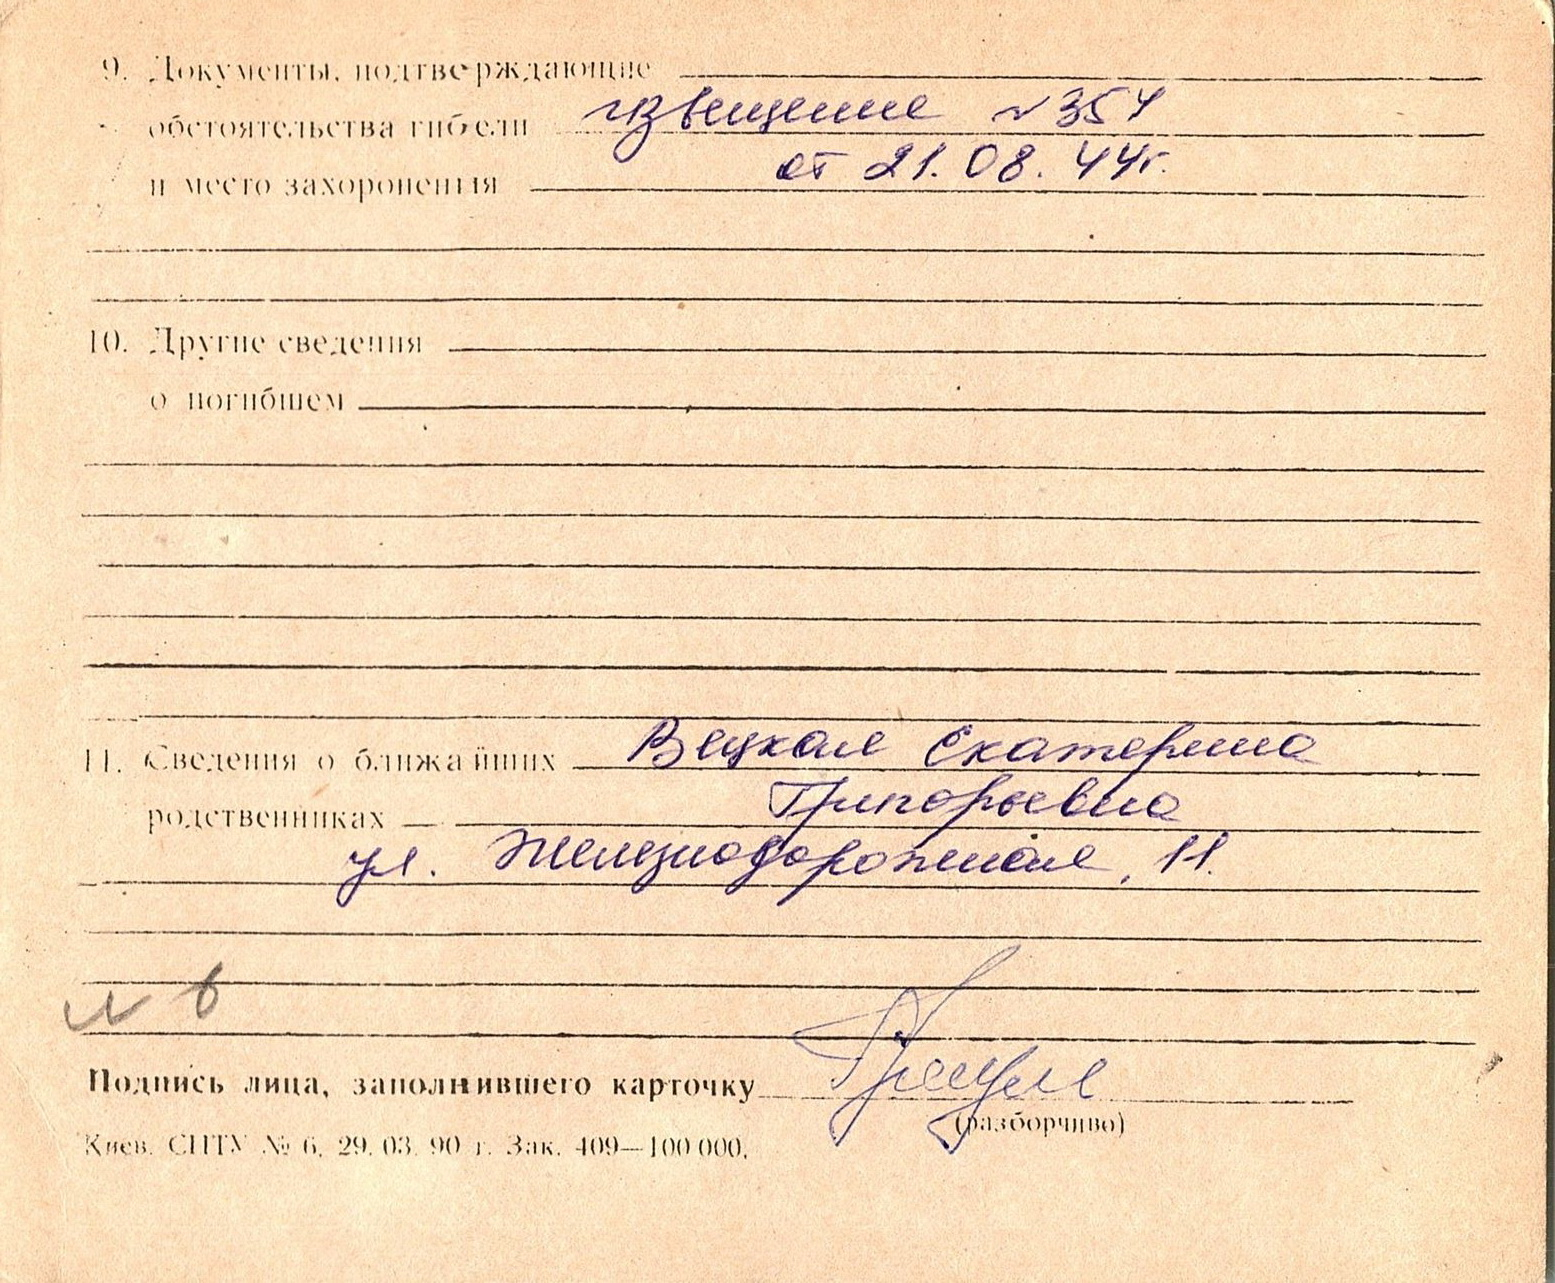 9. Документы, подтверждающие
обстоятельства гибели извещение № 354
и место захоронения от 21.08.44г.
10. Другие сведения
о погибшем
11. Сведения о ближайших Вецкая Екатерина
родственниках Григорьевна
ул. Железнодорожная, 11.
№ 6
Подпись лица, заполнившего карточку
(разборчиво)
Киев. СПТУ № 6, 29. 03. 90 г. Зак. 409—100 000.